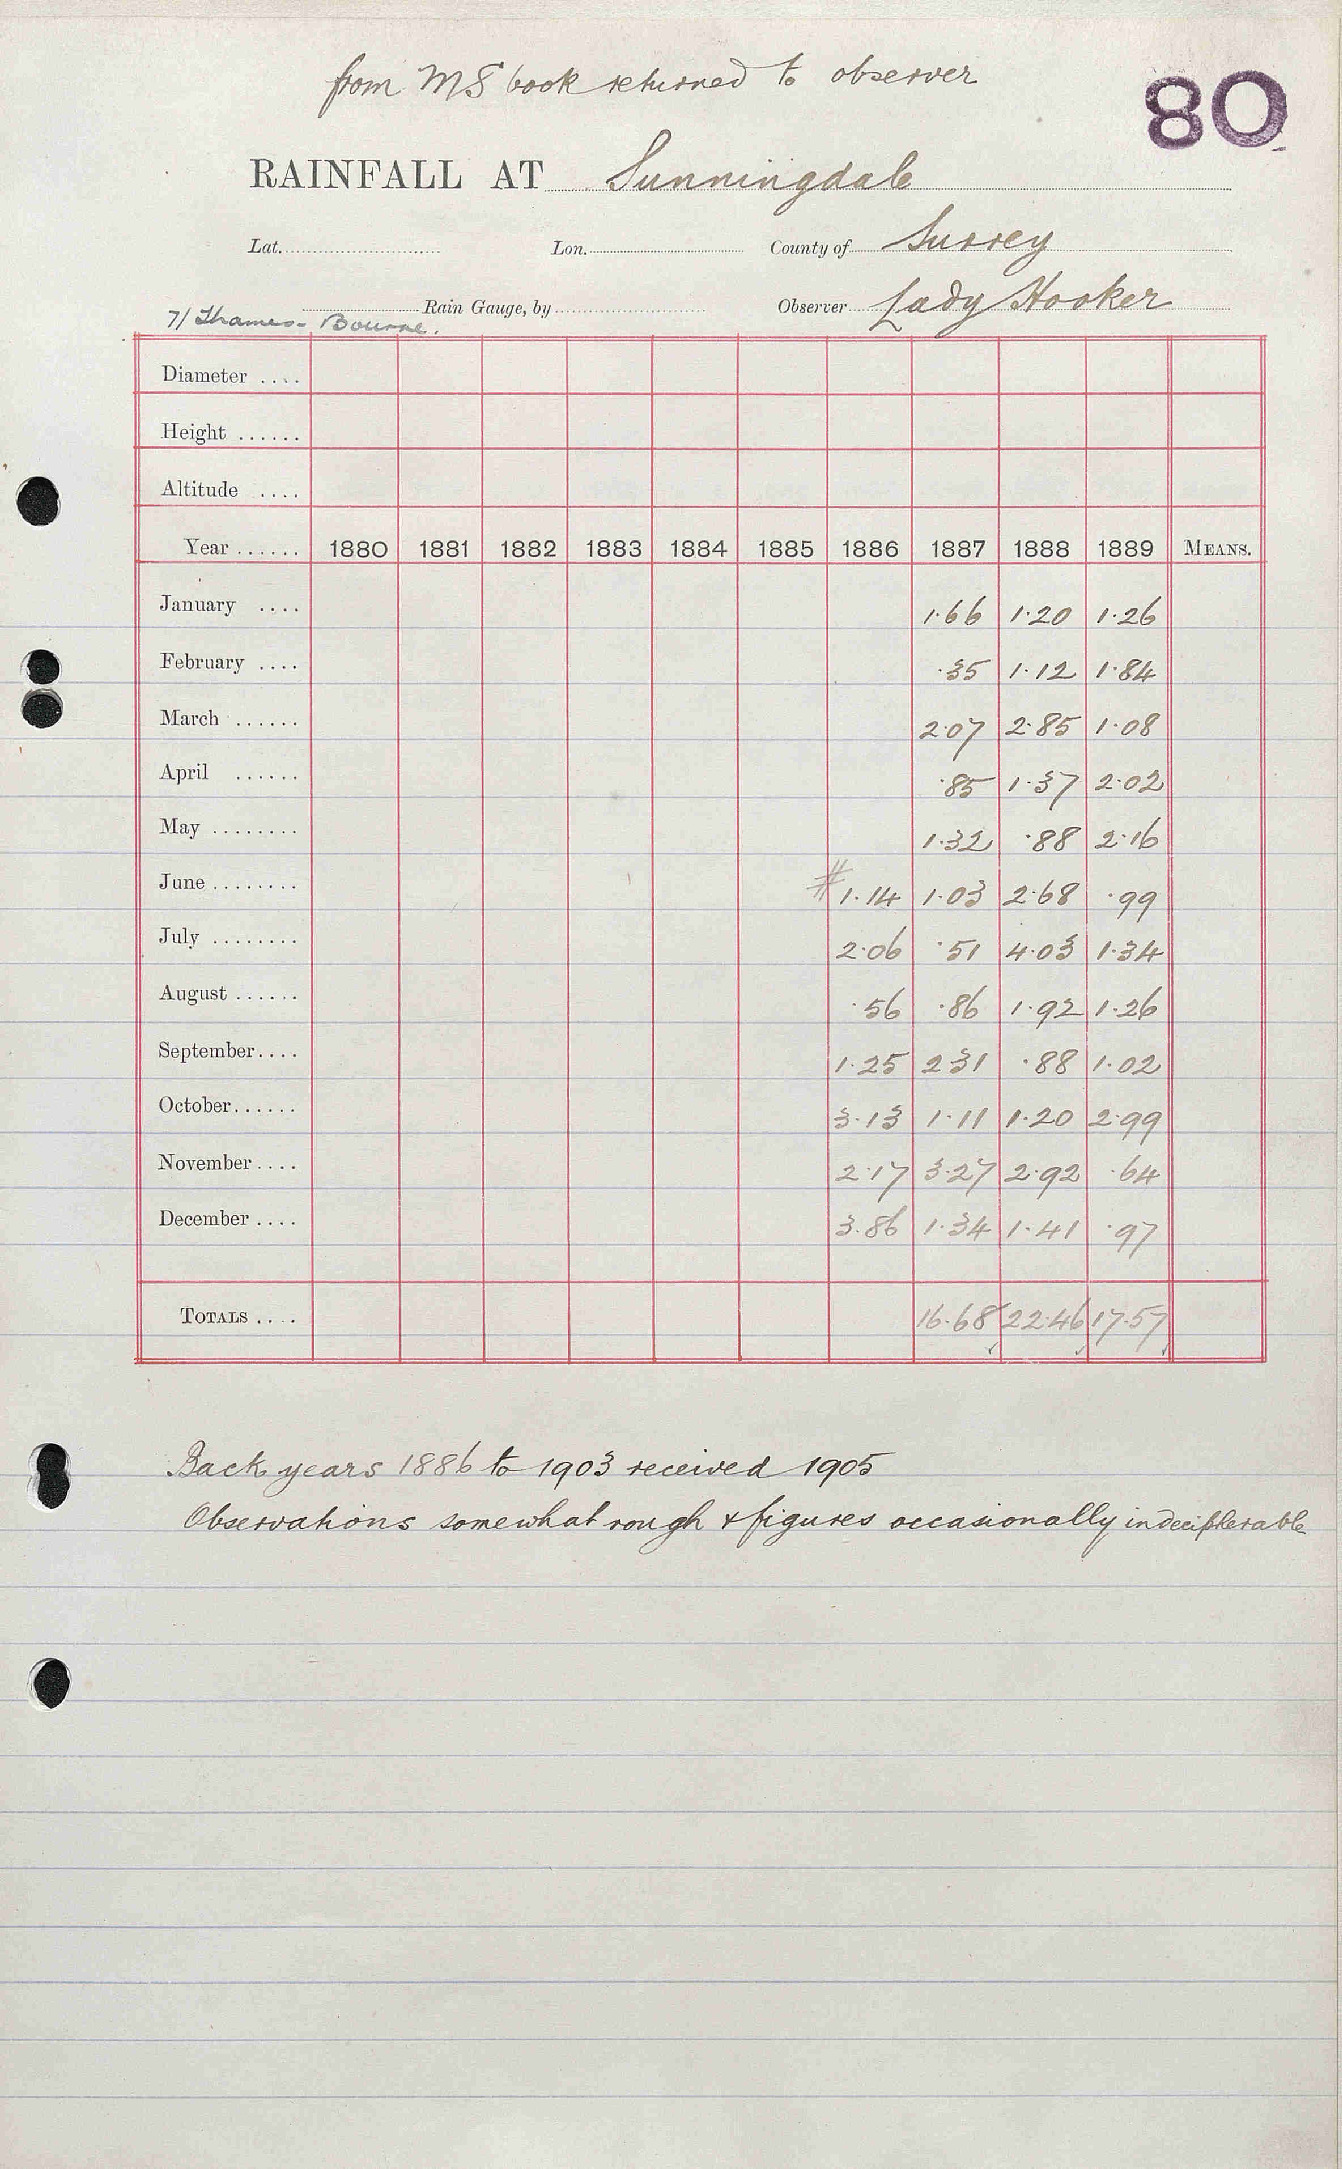 from MS book returned to observer
80
RAINFALL AT Sunningdale
Lat. Lon. County of Surrey
7/ Thames - Bourne. Rain Gauge, by Observer Lady Hooker
Diameter ....
Height ......
Altitude ....
Year ...... 1880 1881 1882 1883 1884 1885 1886 1887 1888 1889 MEANS.
January .... 1.66 1.20 1.26
February .... .35 1.12 1.84
March ...... 2.07 2.85 1.08
April ...... .85 1.37 2.02
May ........ 1.32 .88 2.16
June ........ # 1.14 1.03 2.68 .99
July ........ 2.06 .51 4.03 1.34
August ...... .56 .86 1.92 1.26
September .... 1.25 2.31 .88 1.02
October ...... 3.13 1.11 1.20 2.99
November .... 2.17 3.27 2.92 .64
December .... 3.86 1.34 1.41 .97
TOTALS .... 16.68 22.46 17.57
Back years 1886 to 1903 received 1905
Observations somewhat rough & figures occasionally indecipherable